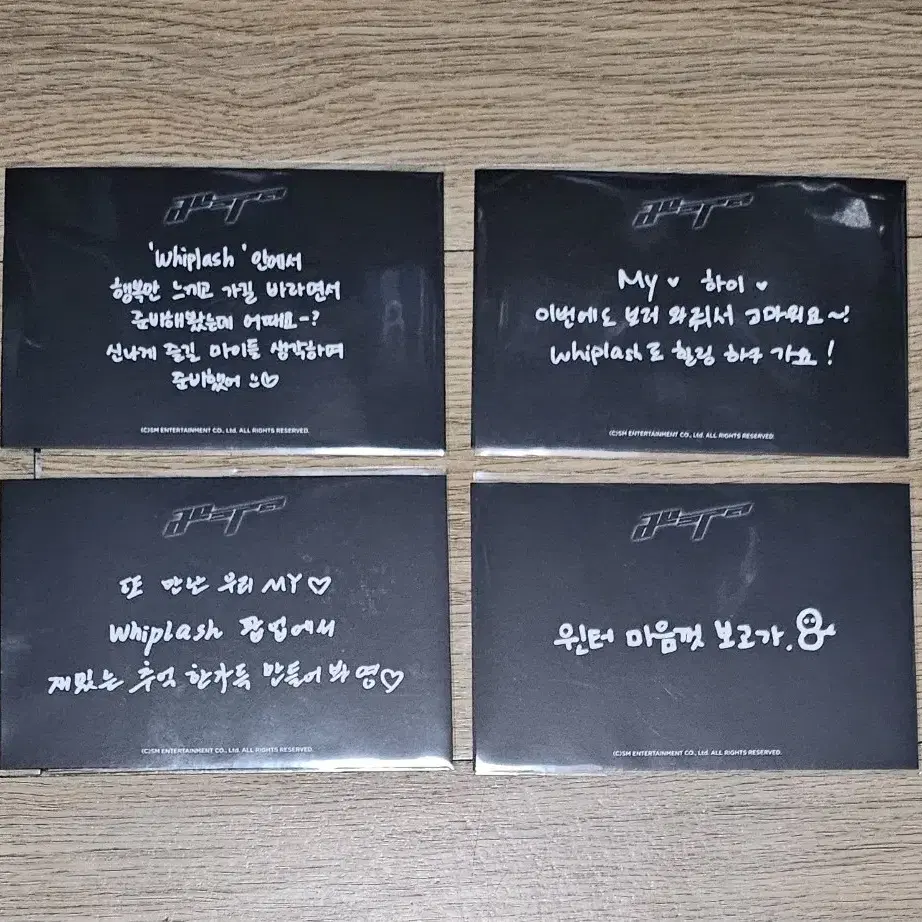 aespa
'Whiplash' 안에서
행복만 느끼고 가길 바라면서
준비해봤는데 어때요~?
신나게 즐길 마이들 생각하며
준비했어 ♡
(C)SM ENTERTAINMENT CO., Ltd. ALL RIGHTS RESERVED.
aespa
My ♥ 하이 ♥
이번에도 보러 와줘서 고마워요~!
Whiplash로 힐링 하구 가요!
(C)SM ENTERTAINMENT CO., Ltd. ALL RIGHTS RESERVED.
aespa
또 만난 우리 MY♡
Whiplash 팝업에서
재밌는 추억 한가득 만들어 봐 영♡
(C)SM ENTERTAINMENT CO., Ltd. ALL RIGHTS RESERVED.
aespa
윈터 마음껏 보고가.
(C)SM ENTERTAINMENT CO., Ltd. ALL RIGHTS RESERVED.